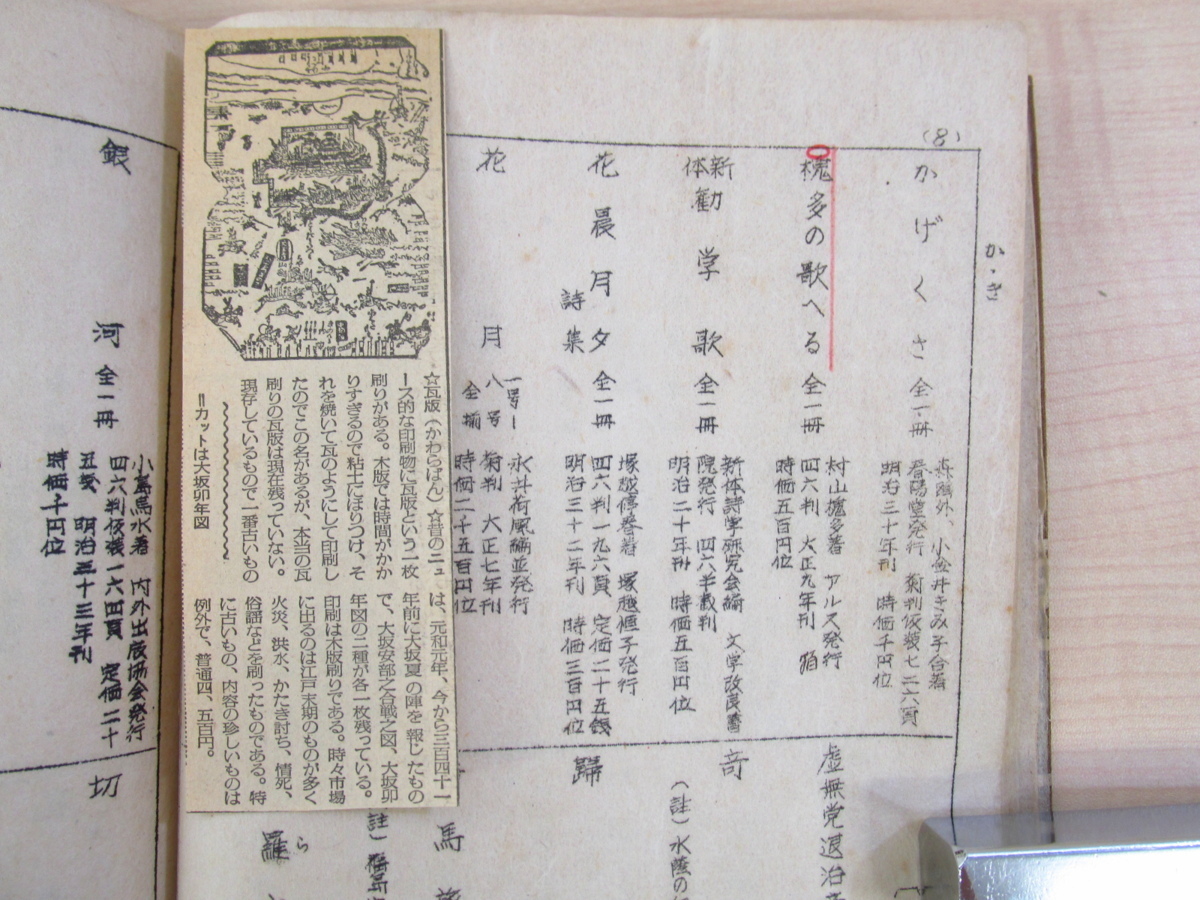 (8)
か・き
かげくさ 全一冊
森鴎外、小金井きみ子合著
春陽堂発行 菊判仮装七二六頁
明治三十年刊 時価千円位
槐多の歌へる 全一冊
村山槐多著 アルス発行
四六判 大正九年刊 函
時価五百円位
新体勧学歌 全一冊
新体詩学研究会編 文学改良書
院発行 四六半截判
明治二十年刊 時価五百円位
花晨月夕 詩集 全一冊
塚越停春著 塚越優子発行
四六判一九六頁 定価二十五銭
明治三十二年刊 時価三百円位
花月 一号ー
八号
全揃
永井荷風編並発行
菊判 大正七年刊
時価二千五百円位
☆瓦版(かわらばん)☆昔のニュ
ース的な印刷物に瓦版という一枚
刷りがある。木版では時間がかか
りすぎるので粘土にほりつけ、そ
れを焼いて瓦のようにして印刷し
たのでこの名があるが、本当の瓦
刷りの瓦版は現在残っていない。
現存しているもので一番古いもの
は、元和元年、今から三百四十一
年前に大坂夏の陣を報じたもの
で、大坂安部之合戦之図、大坂卯
年図の二種が各一枚残っている。
印刷は木版刷りである。時々市場
に出るのは江戸末期のものが多く
火災、洪水、かたき討ち、情死、
俗謡などを刷ったものである。特
に古いもの、内容の珍しいものは
例外で、普通四、五百円。
=カットは大坂卯年図
虚無党退治
奇
(註)水蔭の
歸
馬
(註)
羅
ら
銀河 全一冊
小島烏水著 内外出版協会発行
四六判仮装一六四頁 定価二十
五銭 明治三十三年刊
時価千円位
切